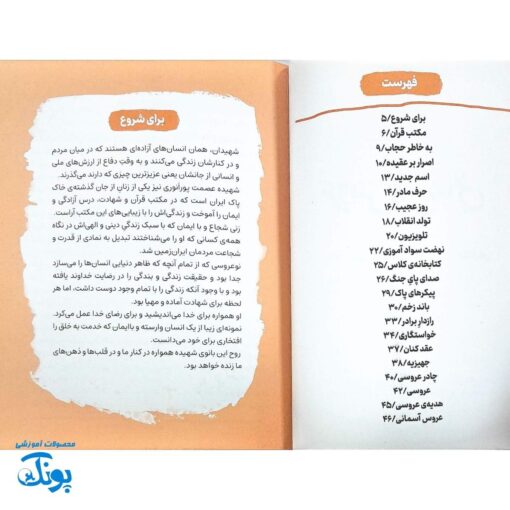 فهرست
برای شروع/۵
مکتب قرآن/۶
به خاطر حجاب/۹
اصرار بر عقیده/۱۰
اسم جدید/۱۳
حرف مادر/۱۴
روز عجیب/۱۶
تولد انقلاب/۱۸
تلویزیون/۲۰
نهضت سواد آموزی/۲۲
کتابخانه‌ی کلاس/۲۵
صدای پای جنگ/۲۶
پیکرهای پاک/۲۹
باند زخم/۳۰
رازدار برادر/۳۳
خواستگاری/۳۴
عقد کنان/۳۷
جهیزیه/۳۸
چادر عروسی/۴۰
عروسی/۴۲
هدیه‌ی عروسی/۴۵
عروس آسمانی/۴۶
برای شروع
شهیدان، همان انسان‌های آزاده‌ای هستند که در میان مردم
و در کنارشان زندگی می‌کنند و به وقتِ دفاع از ارزش‌های ملی
و انسانی از جانشان یعنی عزیزترین چیزی که دارند می‌گذرند.
شهیده عصمت پورانوری نیز یکی از زنانِ از جان گذشته‌ی خاک
پاک ایران است که در مکتب قرآن و شهادت، درس آزادگی و
ایمان را آموخت و زندگی‌اش را با زیبایی‌های این مکتب آراست.
زنی شجاع و با ایمان که با سبک زندگیِ دینی و الهی‌اش در نگاه
همه‌ی کسانی که او را می‌شناختند تبدیل به نمادی از قدرت و
شجاعت مردمان ایران‌زمین شد.
نوعروسی که از تمام آنچه که ظاهر دنیایی انسان‌ها را می‌سازد
جدا بود و حقیقت زندگی و بندگی را در رضایت خداوند یافته
بود و با وجود آنکه زندگی را با تمام وجود دوست داشت، اما هر
لحظه برای شهادت آماده و مهیا بود.
او همواره برای خدا می‌اندیشید و برای رضای خدا عمل می‌کرد.
نمونه‌ای زیبا از یک انسان وارسته و باایمان که خدمت به خلق را
افتخاری برای خود می‌دانست.
روح این بانوی شهیده همواره در کنار ما و در قلب‌ها و ذهن‌های
ما زنده خواهد بود.
محصولات آموزشی
پونک